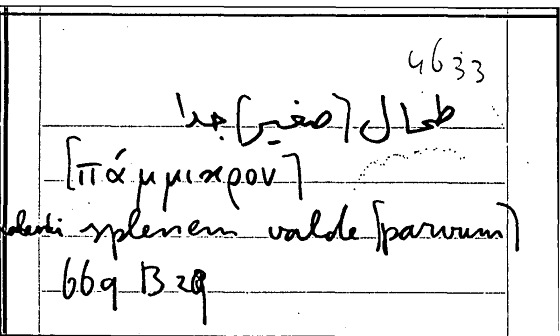 4633
طحال [صغير] جدا
[πάμμικρον]
splenem valde [parvum]
669 B 29